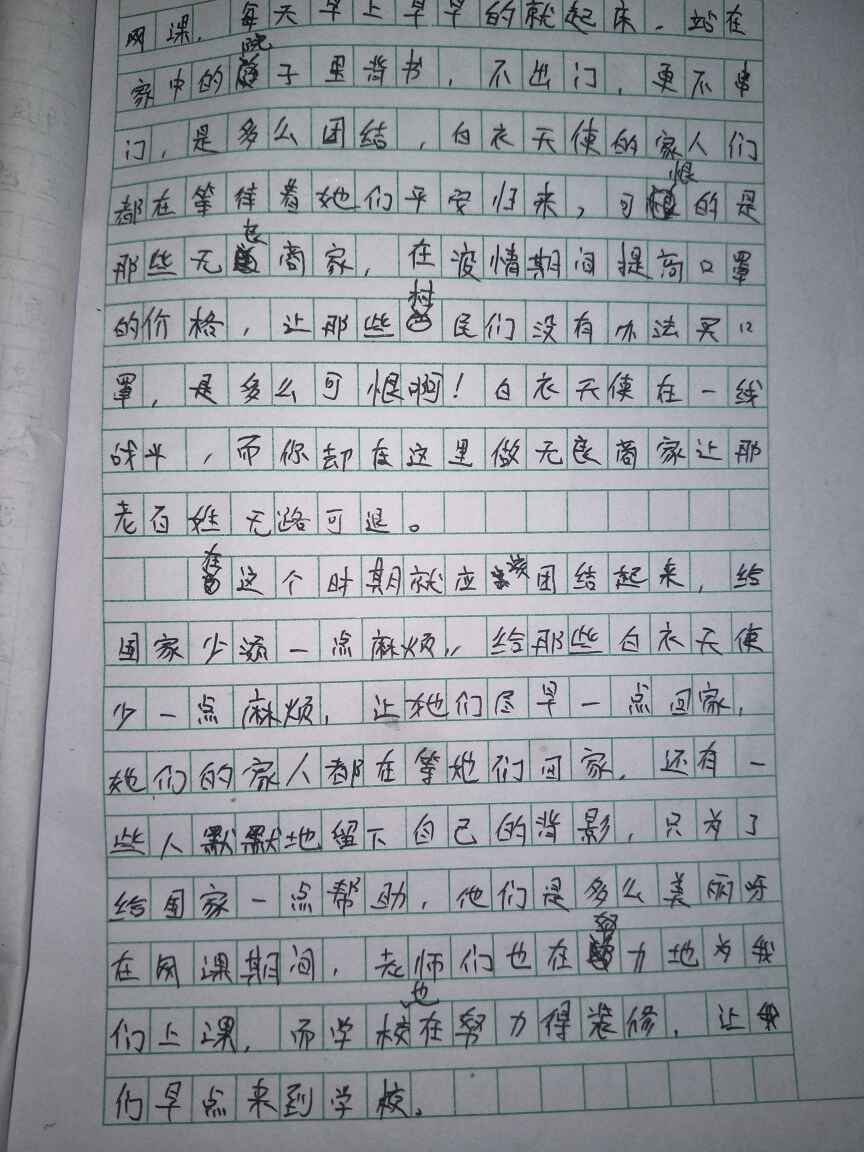 网课，每天早上早早的就起床，站在
家中的院子里背书，不出门，更不串
门，是多么团结，白衣天使的家人们
都在等待着她们平安归来，可恨的是
那些无良商家，在疫情期间提高口罩
的价格，让那些村民们没有办法买口
罩，是多么可恨啊！白衣天使在一线
战斗，而你却在这里做无良商家让那
老百姓无路可退。
在这个时期就应该团结起来，给
国家少添一点麻烦，给那些白衣天使
少一点麻烦，让她们尽早一点回家，
她们的家人都在等她们回家，还有一
些人默默地留下自己的背影，只为了
给国家一点帮助，他们是多么美丽呀
在网课期间，老师们也在努力地为我
们上课，而学校也在努力得装修，让我
们早点来到学校。